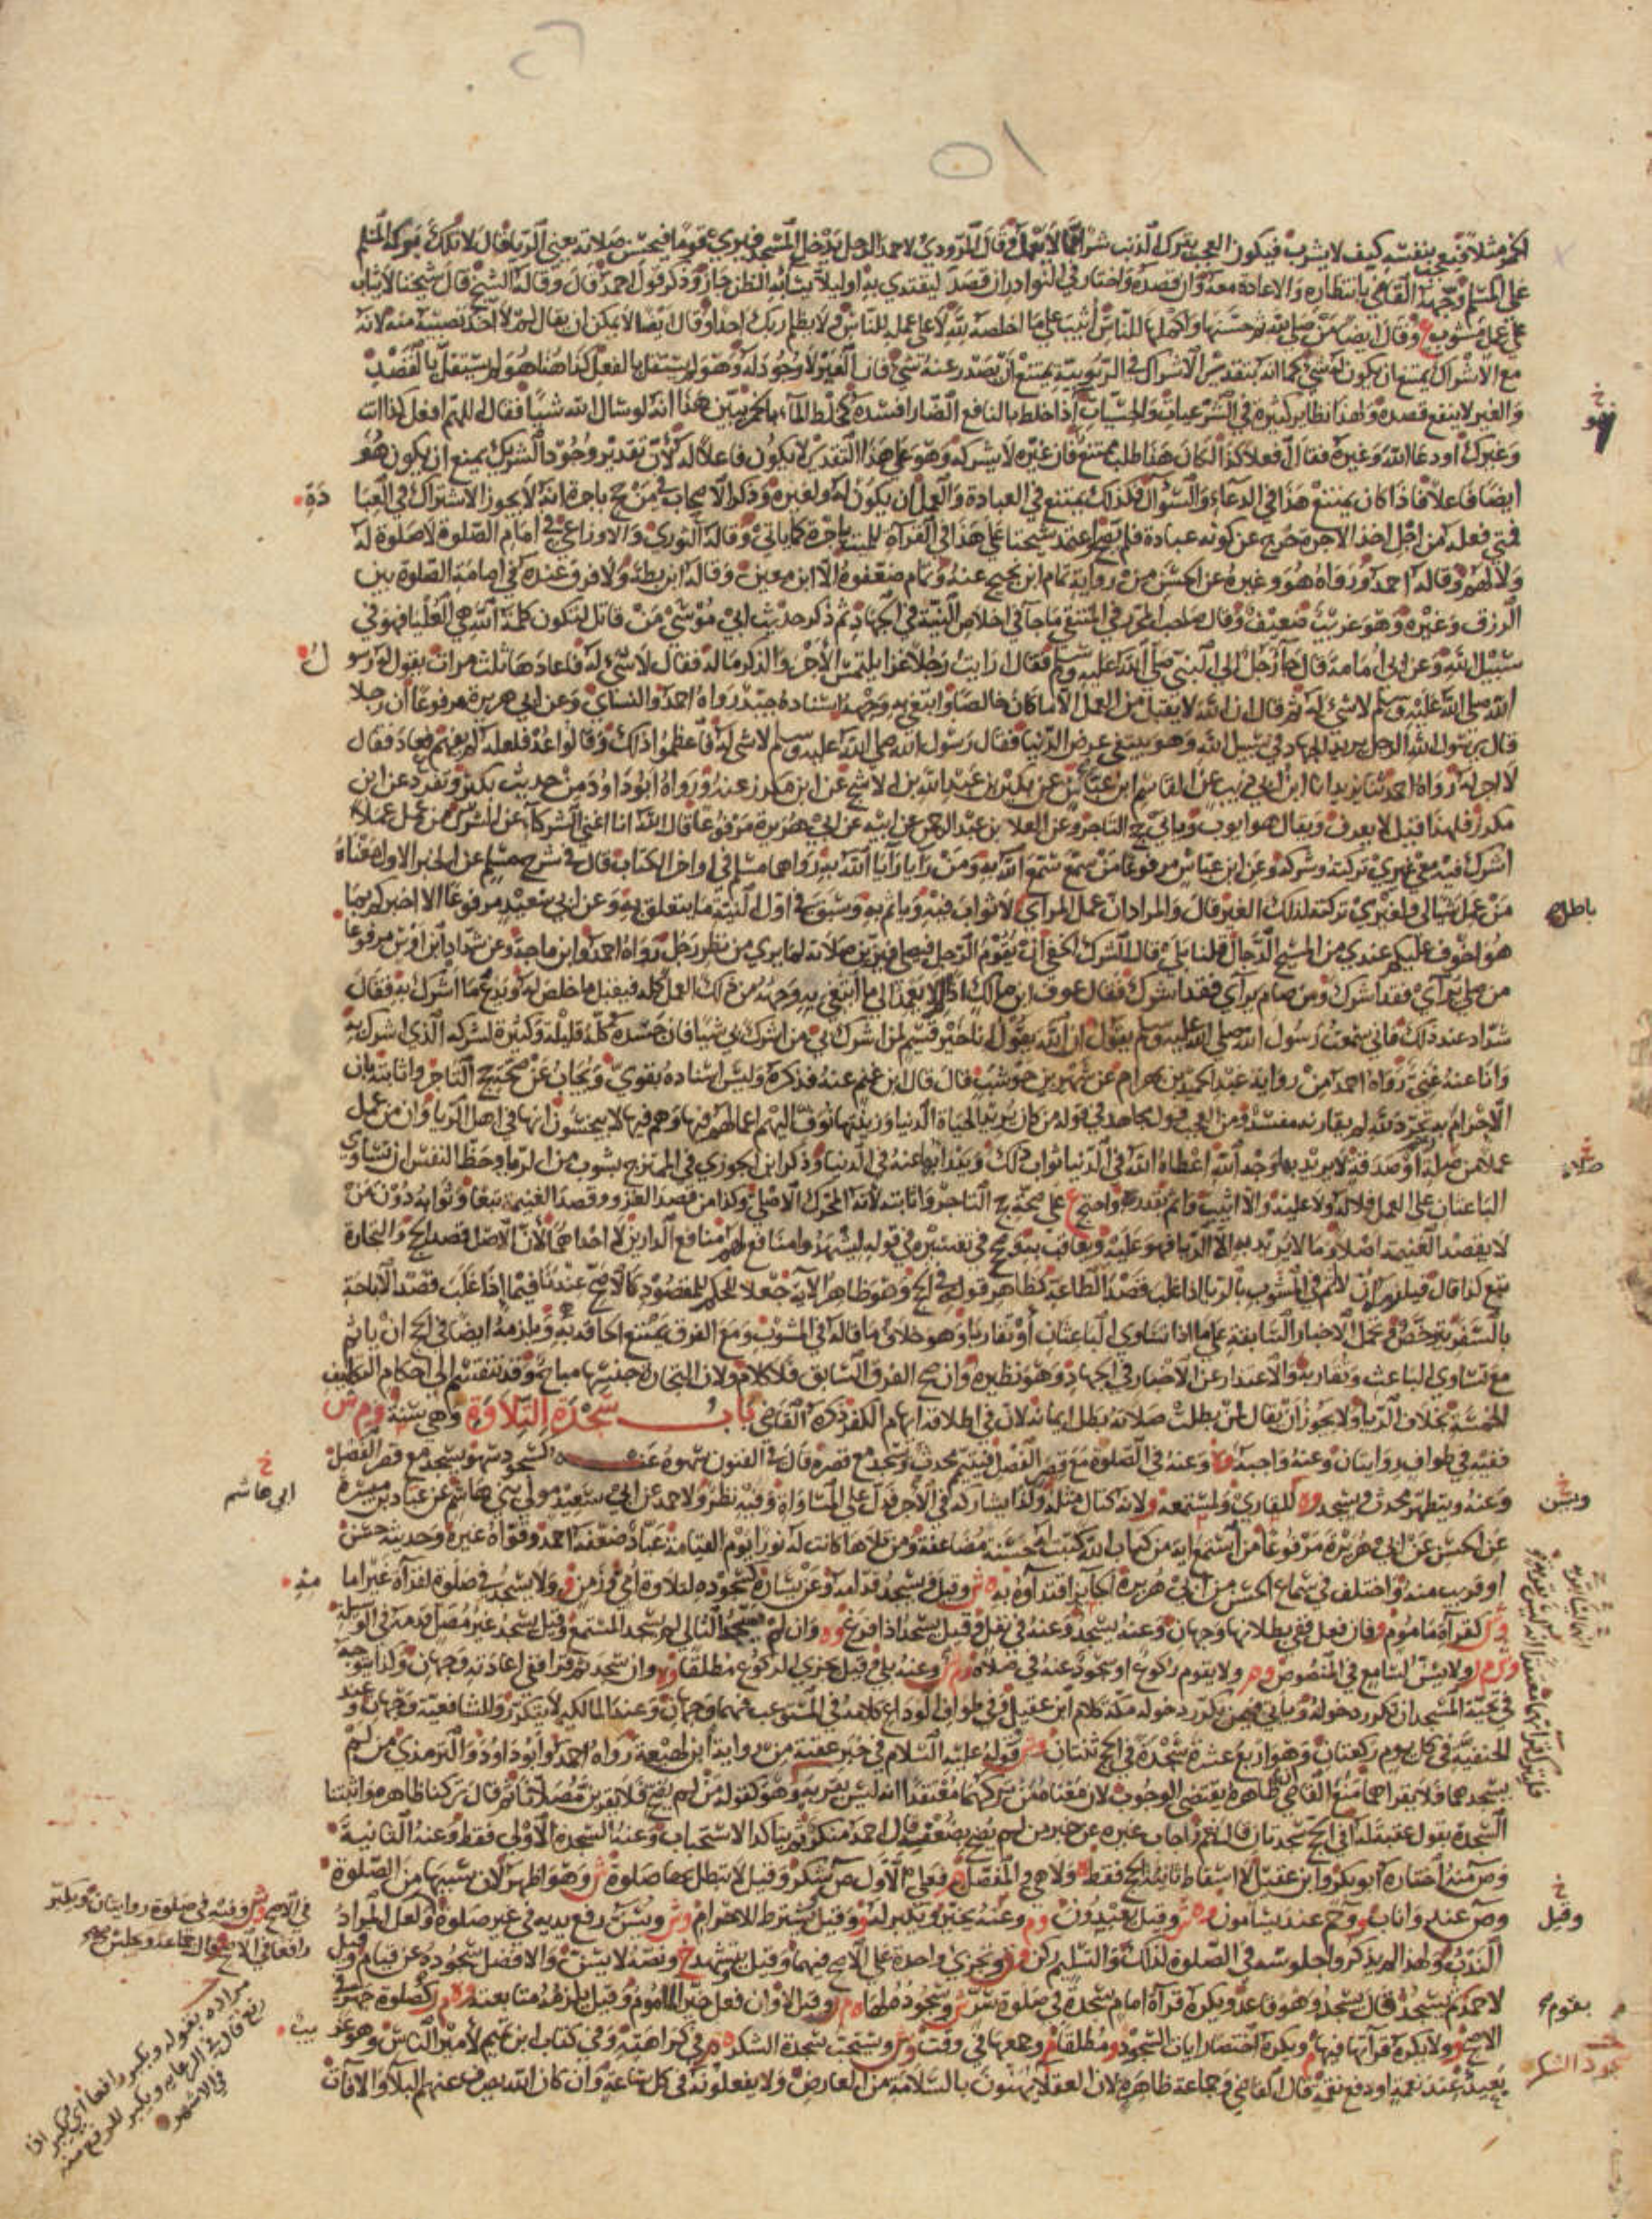 على المسلم وجهه القاضي بانتظاره والاعادة معه وان قصده واختار في النوادر ان قصد ليقتدي به او ليلا يساء به الظن جاز وذكر قول احمد قال وقاله الشيخ قال شيخنا لا يثاب
على عمل مشوب ع وقال ايضا من صلى لله ثم حسنها واكملها للناس اثيب على ما اخلصه لله لا على عمله للناس ولا يظلم ربك احدا
مع الاشراك يمتنع ان يكون له شي كما انه بتقدير الاشراك في الربوبية يمتنع ان يصدر عنه شي فان الغير لا وجود له وهو لم يستقل بالفعل كذا هنا هو لم يستقل بالقصد
والغير لا ينفع قصده ولهذا نظاير كثيرة في الشرعيات والحسيات اذا خلط بالنافع الضار افسده كخلط الماء بالخمر يبين هذا انه لو سال الله شيا فقال اللهم افعل كذا انت
وغيرك او دعا الله وغيره فقال افعلا كذا لكان هذا طلبا ممتنعا فان غيره لا يشركه وهو على هذا التقدير لا يكون فاعلا له لان تقدير وجود الشريك يمنع ان يكون هو
ايضا فاعلا فاذا كان يمتنع هذا في الدعاء والسؤال فكذلك يمتنع في العبادة والعمل ان يكون له ولغيره وذكر الاصحاب فيمن حج باجرة انه لا يجوز الاشتراك في العبا دة
فمتى فعله من اجل اخذ الاجرة خرج عن كونه عبادة فلم يصح واعتمد شيخنا على هذا في القراة للميت باجرة كما ياتي وقاله الثوري والاوزاعي في امام الصلوة لا صلوة له
ولا لهم وقاله احمد ورواه هو وغيره عن الحسن من رواية تمام ابن نجيح عنه وتمام ضعفوه الا ابن معين وقاله ابن بطة ولا فرق عنده في امامة الصلوة بين
الرزق وغيره وهو غريب ضعيف وقال صاحب المحرر في المنتقى ما جا في اخلاص النية في الجهاد ثم ذكر حديث ابي موسى من قاتل لتكون كلمة الله هي العليا فهو في
سبيل الله وعن ابي امامة قال جا رجل الى النبي صلى الله عليه وسلم فقال ارايت رجلا غزا يلتمس الاجر والذكر ما له فقال لا شي له فاعادها ثلث مرات يقول له رسو ل
الله صلى الله عليه وسلم لا شي له ثم قال ان الله لا يقبل من العمل الا ما كان خالصا وابتغي به وجهه اسناده جيد رواه احمد والنساي وعن ابي هريرة مرفوعا ان رجلا
قال يرسول الله الرجل يريد الجهاد في سبيل الله وهو يبتغي عرض الدنيا فقال رسول الله صلى الله عليه وسلم لا شي له فاعظموا ذلك وقالوا عد فلعله لم يفهم فعاد فقال
لا اجر له رواه احمد ثنا يزيد انا ابن ابي ذيب عن القاسم ابن عباس عن بكير بن عبد الله بن الاشج عن ابن مكرز عنه ورواه ابو داود من حديث بكير وتفرد عن ابن
مكرز فلهذا قيل لا يعرف ويقال هو ايوب وياتي حج التاجر وعن العلا بن عبد الرحمن عن ابيه عن ابي هريرة مرفوعا قال الله انا اغنى الشركاء عن الشرك من عمل عملا
اشرك فيه معي غيري تركته وشركه وعن ابن عباس مرفوعا من سمع سمع الله به ومن رايا رايا الله به رواهما مسلم في اواخر الكتاب قال في شرح مسلم عن الخبر الاول معناه
من عمل شيا لي ولغيري تركته لذلك الغير قال والمراد ان عمل المراي لا ثواب فيه وياثم به وسبق في اول النية ما يتعلق به وعن ابي سعيد مرفوعا الا اخبركم بما
باطل
هو اخوف عليكم عندي من المسيح الدجال قلنا بلى قال الشرك الخفي ان يقوم الرجل فيصلي فيزين صلاته لما يرى من نظر رجل رواه احمد وابن ماجة وعن شداد ابن اوس مرفوعا
من صلى يراي فقد اشرك ومن صام يراي فقد اشرك فقال عوف ابن مالك افلا يعمد الى ما ابتغي به وجهه من ذلك العمل كله فيقبل ما خلص له ويدع ما اشرك به فقال
شداد عند ذلك فاني سمعت رسول الله صلى الله عليه وسلم يقول ان الله يقول انا خير قسيم لمن اشرك بي من اشرك بي شيا فان جسده كله قليله وكثيره لشريكه الذي اشرك به
وانا عنه غني رواه احمد من رواية عبد الحميد بن بهرام عن شهر بن حوشب قال قال ابن غنم عنه فذكره وليس اسناده بقوي ويجاب عن صحة حج التاجر واثابته بان
الاحرام به تجرد لله لم يقارنه مفسد ومن العجب قول مجاهد في قوله من كان يريد الحياة الدنيا وزينتها نوف اليهم اعمالهم فيها وهم فيها لا يبخسون انها في اهل الريا وان من عمل
عملا من صلة او صدقة لا يريد بها وجه الله اعطاه الله في الدنيا ثواب ذلك ويدرا بها عنه في الدنيا وذكر ابن الجوزي في الممتزج بشوب من الريا وحظ النفس ان تساوى
الباعثان على العمل فلا له ولا عليه والا اثيب واثم بقدره واحتج ع على صحة حج التاجر واثابته لانه المحرك الاصلي وكذا من قصد الغزو وقصد الغنيمة تبعا وثوابه دون من
لا يقصد الغنيمة اصلا وما لا يريد به الا الريا فهو عليه ويعاقب به وصح في تفسيره في قوله ليشهدوا منافع لهم منافع الدارين لا احداهما لان الاصل قصد الحج والتجارة
تبع
بالسفر يترخص
مع تساوي الباعث وتقاربه والاعتذار عن الاخبار في الجهاد وهو نظيره وان صح الفرق السابق فلا كلام ولان التجارة جنسها مباح وقد تنقسم الى احكام التكليف
الخمسة بخلاف الريا ولا يجوز ان يقال لمن بطلت صلاته بطل ايمانه لان في اطلاقه ايهام الكفر ذكره القاضي باب سجدة التلاوة وهي سنة وم ش
ففيه في طواف روايتان وعنه واجبة وعنه في الصلوة مع قصر الفصل فيتيمم محدث ويسجد مع قصره قال في الفنون سهوه عنه كسجود سهو يسجد مع قصر الفصل
وعنه ويتطهر محدث ويسجد وه للقاري والمستمعه ولانه كتال مثله وكذا يشاركه في الاجر فدل على المساواة وفيه نظر ولاحمد عن ابي سعيد مولى بني هاشم عن عباد بن ميسرة
ويسن
ابي هاشم
عن الحسن عن ابي هريرة مرفوعا من استمع اية من كتاب الله كتبت له حسنة مضاعفة ومن تلاها كانت له نورا يوم القيامة عباد ضعفه احمد وقواه غيره وحديثه حسن
او قريب منه واختلف في سماع الحسن من ابي هريرة الجايز اقتداوه به ه ش وقيل ويسجد قدامه وعن يساره كسجوده لتلاوة امي وزمن ولا يسجد في صلوة لقراة غير اما مه
وش كقراة ماموم فان فعل ففي بطلانها وجهان وعنه يسجد وعنه في نفل وقيل يسجد اذا فرغ وه وان لم يسجد التالي لم يسجد المستمع وقيل يسجد غير مصل قدمه في الوسيلة
ولا يسن لسامع في المنصوص وم ولا يقوم ركوع او سجود عنه في صلاة وم ش وعنه بلى وقيل يجزي الركوع مطلقا وه وان سجد ثم قرا ففي اعادته وجهان وكذا يتوجه
في تحية المسجد ان تكرر دخوله وياتي فيمن تكرر دخوله مكة كلام ابن عقيل وفي طواف الوداع كلامه في المستوعب فيهما وجهان وعند المالكية لا يتكرر وللشافعية وجهان وعند
الحنفية في كل يوم ركعتان وهو اربع عشرة سجدة في الحج ثنتان وش قوله عليه السلام في خبر عقبة من رواية ابن لهيعة رواه احمد وابو داود والترمذي من لم
يسجدهما فلا يقراهما منع القاضي ظاهره يقتضي الوجوب لان معناه من تركهما معتقدا انه ليس بقربة وهو كقوله من لم يضح فلا يقربن مصلانا ثم قال تركنا ظاهره واثبتنا
السجدة بقول عقبة له افي الحج سجدتان قال نعم واجاب غيره عن خبر من لم يضح بضعفه قال احمد منكر ثم بتاكد الاستحباب وعنه السجدة الاولى فقط وعنه الثانية
وص منه اختاره ابو بكر وابن عقيل لا اسقاط ثانية الحج فقط ه ولا هي والمفصل م فعلى الاول ص شكر وقيل لا تبطل بها صلوة ش وهو اظهر لان سببها من الصلوة
وص عنده واناب و وحم عند يسامون ه ش وقيل يعبدون وم وعنه يخير ويكبر لهو وقيل يشترط للاحرام وش ويسن رفع يديه في غير صلوة ولعل المراد
وقيل
الندب ولهذا لم يذكروا جلوسه في الصلوة لذلك والتسليم ركن وتجزي واحدة على الاصح فيهما وقيل يتشهد خ ونصه لا يسن والافضل سجوده عن قيام وقيل
لاحمد ثم يسجد قال يسجد وهو قاعد ويكره قراة امام سجدة في صلوة سر ش وسجوده لها ه م وقيل لا وان فعل خير الماموم وقيل يلزمه متابعته وه م كصلوة جهر في
يقوم
الاصح وولا يكره قراتها فيها م ويكره اختصار ايات السجود و مطلقا م وجمعها في وقت وش ويستحب سجدة الشكر ه م في كراهته وفي كتاب ابن تميم لامير الناس وهو غر يب
سجود الشكر
بعيد عند نعمة او دفع نقمة قال القاضي في جماعة ظاهرة لان العقلا يهنون بالسلامة من العارض ولا يفعلونه في كل ساعة وان كان الله يصرف عنهم البلا والافات
في الاصح وش وفيه في صلوة روايتان ويكبر
مراده بقوله ويكبر رافعا اي يكبر اذا
رفع قال في الرعاية ويكبر للرفع منه
في الاشهر